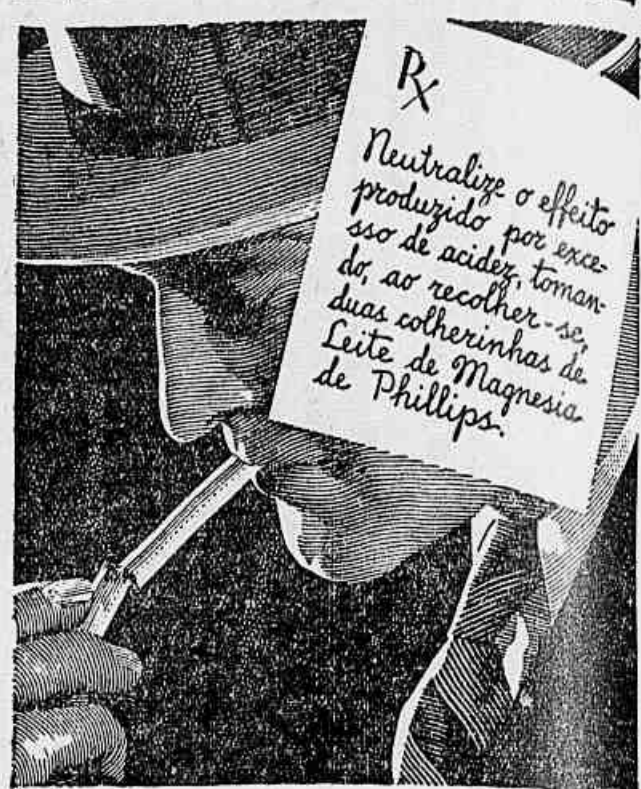 Rx
Neutralize o effeito
produzido por exce-
sso de acidez, toman-
do, ao recolher-se,
duas colherinhas de
Leite de Magnesia
de Phillips.